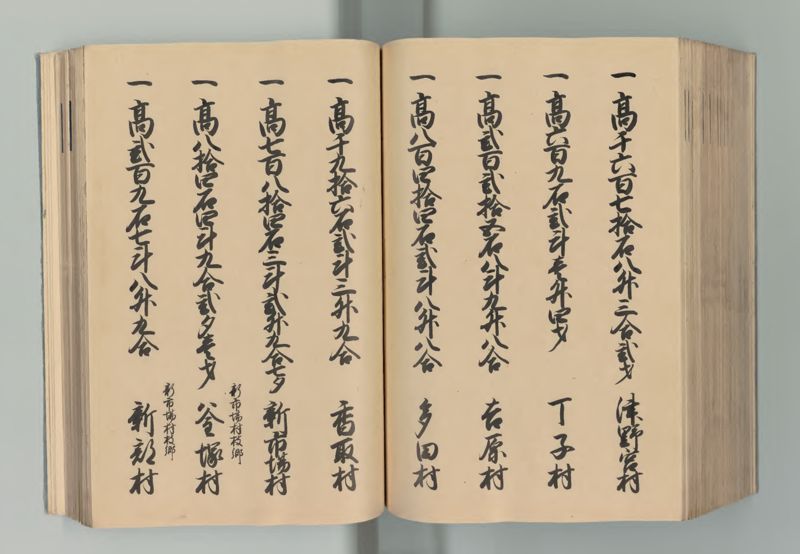 一高千六百七拾石八升三合弐才 津野宮村
一高六百九石弐斗壱升四才 丁子村
一高弐百弐拾五石八斗九升八合 吉原村
一高八百四拾四石弐斗八升八合 多田村
一高千九拾六石弐斗三升九合 香取村
一高七百八拾四石三斗弐升九合七夕 新市場村
新市場村枝郷
一高八拾四石四斗九合弐夕壱才 釜塚村
新市場村枝郷
一高弐百九石七斗八升九合 新部村